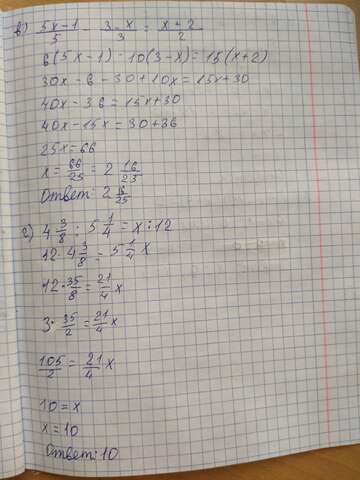 в) (5x-1)/5 - (3-x)/3 = (x+2)/2
6(5x-1)-10(3-x)=15(x+2)
30x-6-30+10x=15x+30
40x-36=15x+30
40x-15x=30+36
25x=66
x=66/25=2 16/25
Ответ: 2 6/25
г) 4 3/8 : 5 1/4 = x:12
12·4 3/8 = 5 1/4 x
12·35/8=21/4 x
3·35/2=21/4 x
105/2=21/4 x
10=x
x=10
Ответ: 10